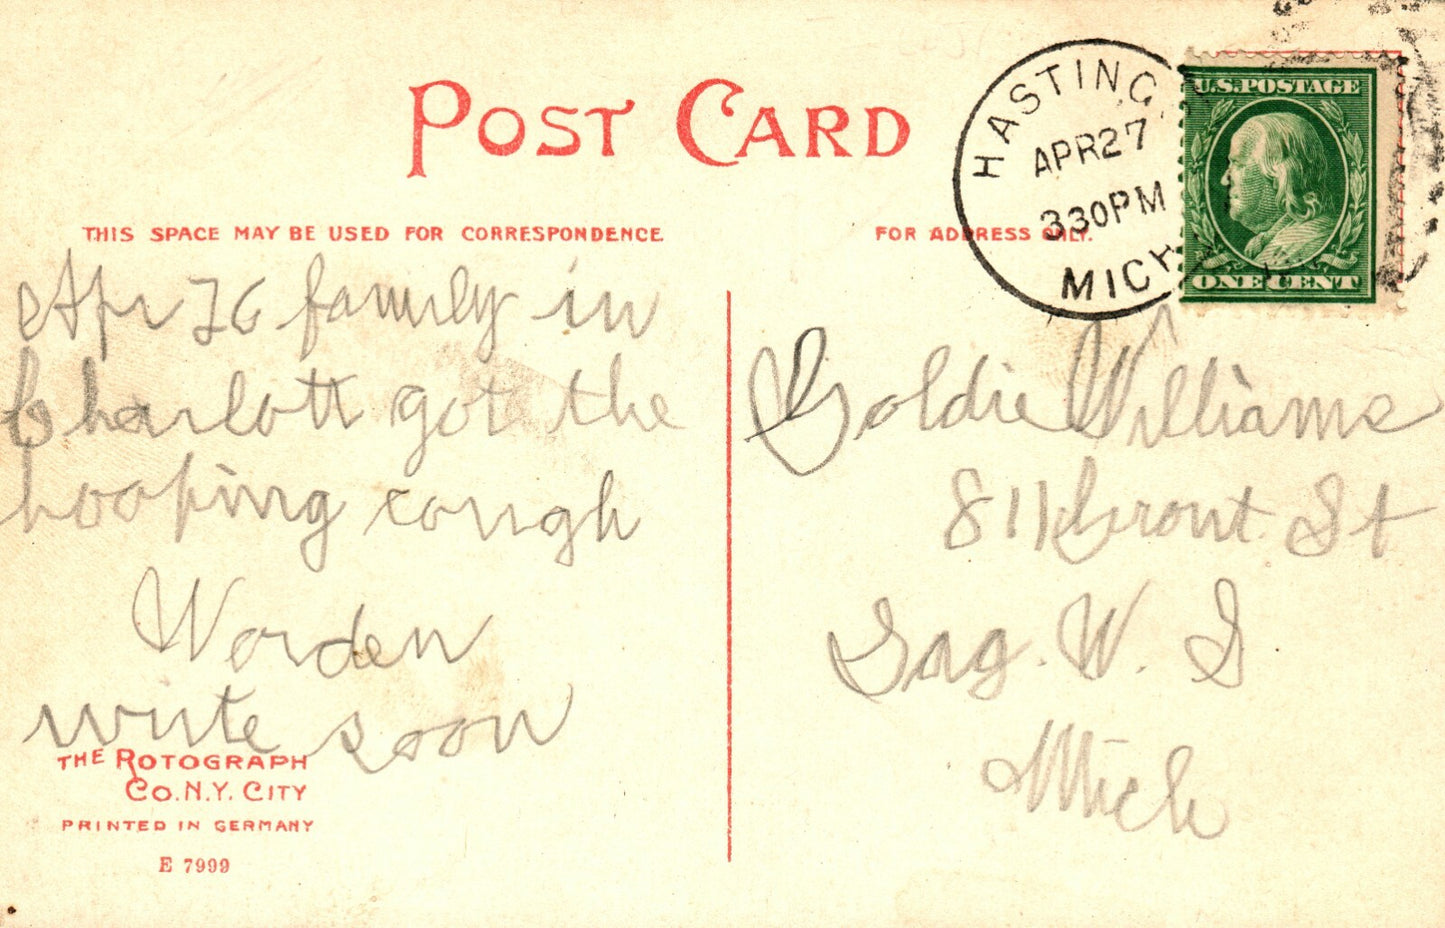 POST CARD
THIS SPACE MAY BE USED FOR CORRESPONDENCE
FOR ADDRESS ONLY.
HASTING
APR 27
330 PM
MICH
U.S. POSTAGE
ONE CENT
Apr 26 family in
Charlott got the
hooping cough
Worden
write soon
Goldie Williams
811 St
Sag. W. S
Mich
THE ROTOGRAPH
CO. N.Y. CITY
PRINTED IN GERMANY
E 7999